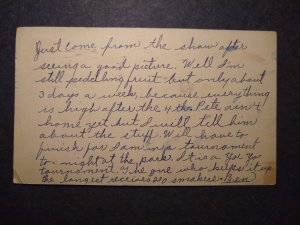 Just come from the show after
seeing a good picture. Well I'm
still peddling fruit but only about
3 days a week, because everything
is high after the 4th. Pete isn't
home yet but I will tell him
about the stuff. Will have to
finish for I am in a tournament
to-night at the park. It is a Yo Yo
tournament. The one who keeps it up
the longest receives 20 smakers. Ben